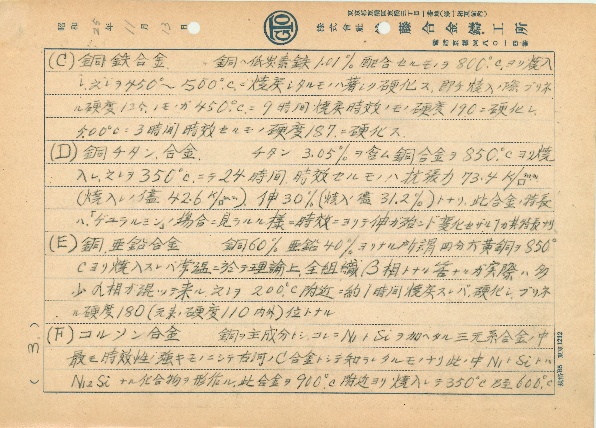 東京京都蒲田区
昭和 25年 11月 13日
株式會社 藤合金鑛工所
(C) 銅鉄合金 銅ヘ低炭素鉄 1.01% 配合セルモノヲ 800°C.ヨリ焼入
レ之レヲ450°〜500°C.ニ焼戻シタルモノハ著シク硬化ス、即チ焼入ノ際ブリネ
ル硬度 12ノモノガ 450°C.ニ 9時間焼戻時效ノモノハ硬度 190ニ硬化シ
500°C.ニ 3時間時效セルモノハ硬度187.ニ硬化ス.
(D) 銅チタン合金. チタン 3.05%ヲ含ム銅合金ヲ 850°Cヨリ焼
入レ之レヲ350°C.ニテ24時間.時效セルモノハ抗張力 73.4 K/□mm
(焼入レノ儘 42.6 K/□mm) 伸 30%(焼入儘 31.2%)トナリ、此合金ノ特長
ハ「ヂュラルミン」ノ場合ニ見ラルル様ニ時效ニヨリテ伸ガ殆ンド変化セザル
(E) 銅亜鉛合金 銅60% 亜鉛40%ヨリナル所謂四分六黄銅ヲ850°
Cヨリ焼入スレバ常温ニ於テ理論上、全組織β相トナル筈ナルガ実際ハ多
少α相ガ混ッテ来ル之レヲ 200°C附近ニ約1時間焼戻スレバ、硬化シブリネ
ル硬度180(元来、硬度110内外)位トナル
(F) コルソン合金 銅ヲ主成分トシ、コレニNiトSiヲ加ヘタル三元系合金ノ中
最モ時效性ノ強キモノニシテ古河ノC合金トシテ知ラレタルモノナリ此ノ中NiトSiトハ
Ni₂Siナル化合物ヲ形作ル、此合金ヲ900°C附近ヨリ焼入シテ350°C乃至600°C
(3)